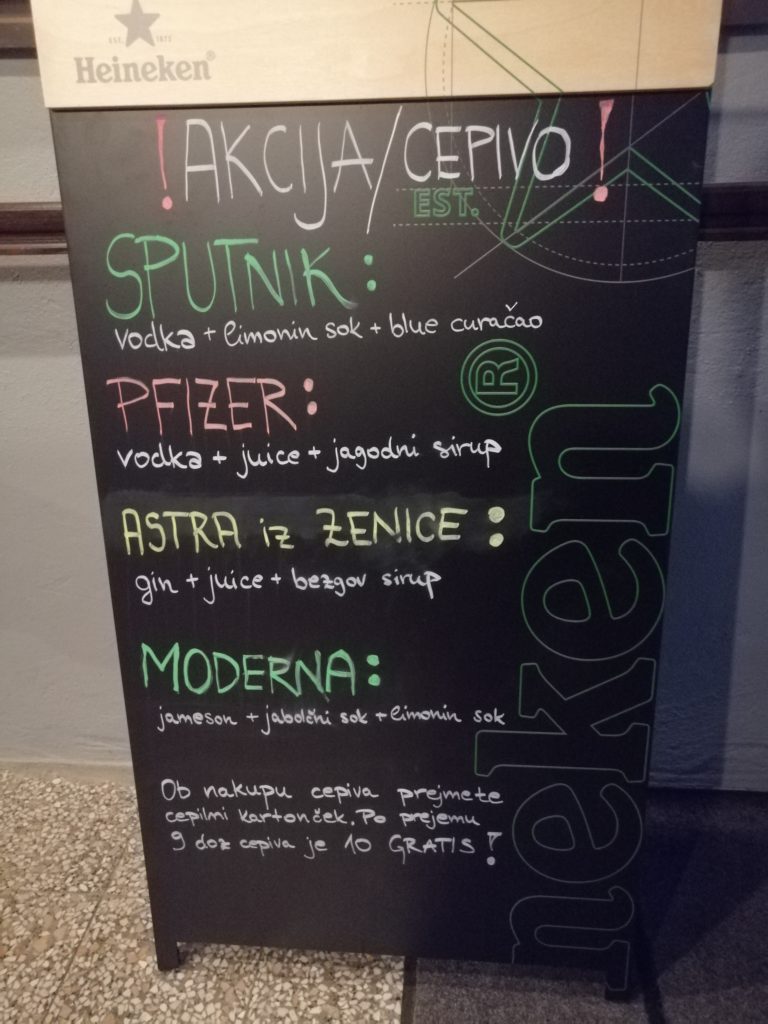 EST. 1873
Heineken®
! AKCIJA/CEPIVO !
EST.
SPUTNIK:
vodka + limonin sok + blue curačao
®
PFIZER:
vodka + juice + jagodni sirup
ASTRA iz ZENICE:
gin + juice + bezgov sirup
MODERNA:
jameson + jabolčni sok + limonin sok
Ob nakupu cepiva prejmete
cepilni kartonček. Po prejemu
9 doz cepiva je 10 GRATIS!
neken